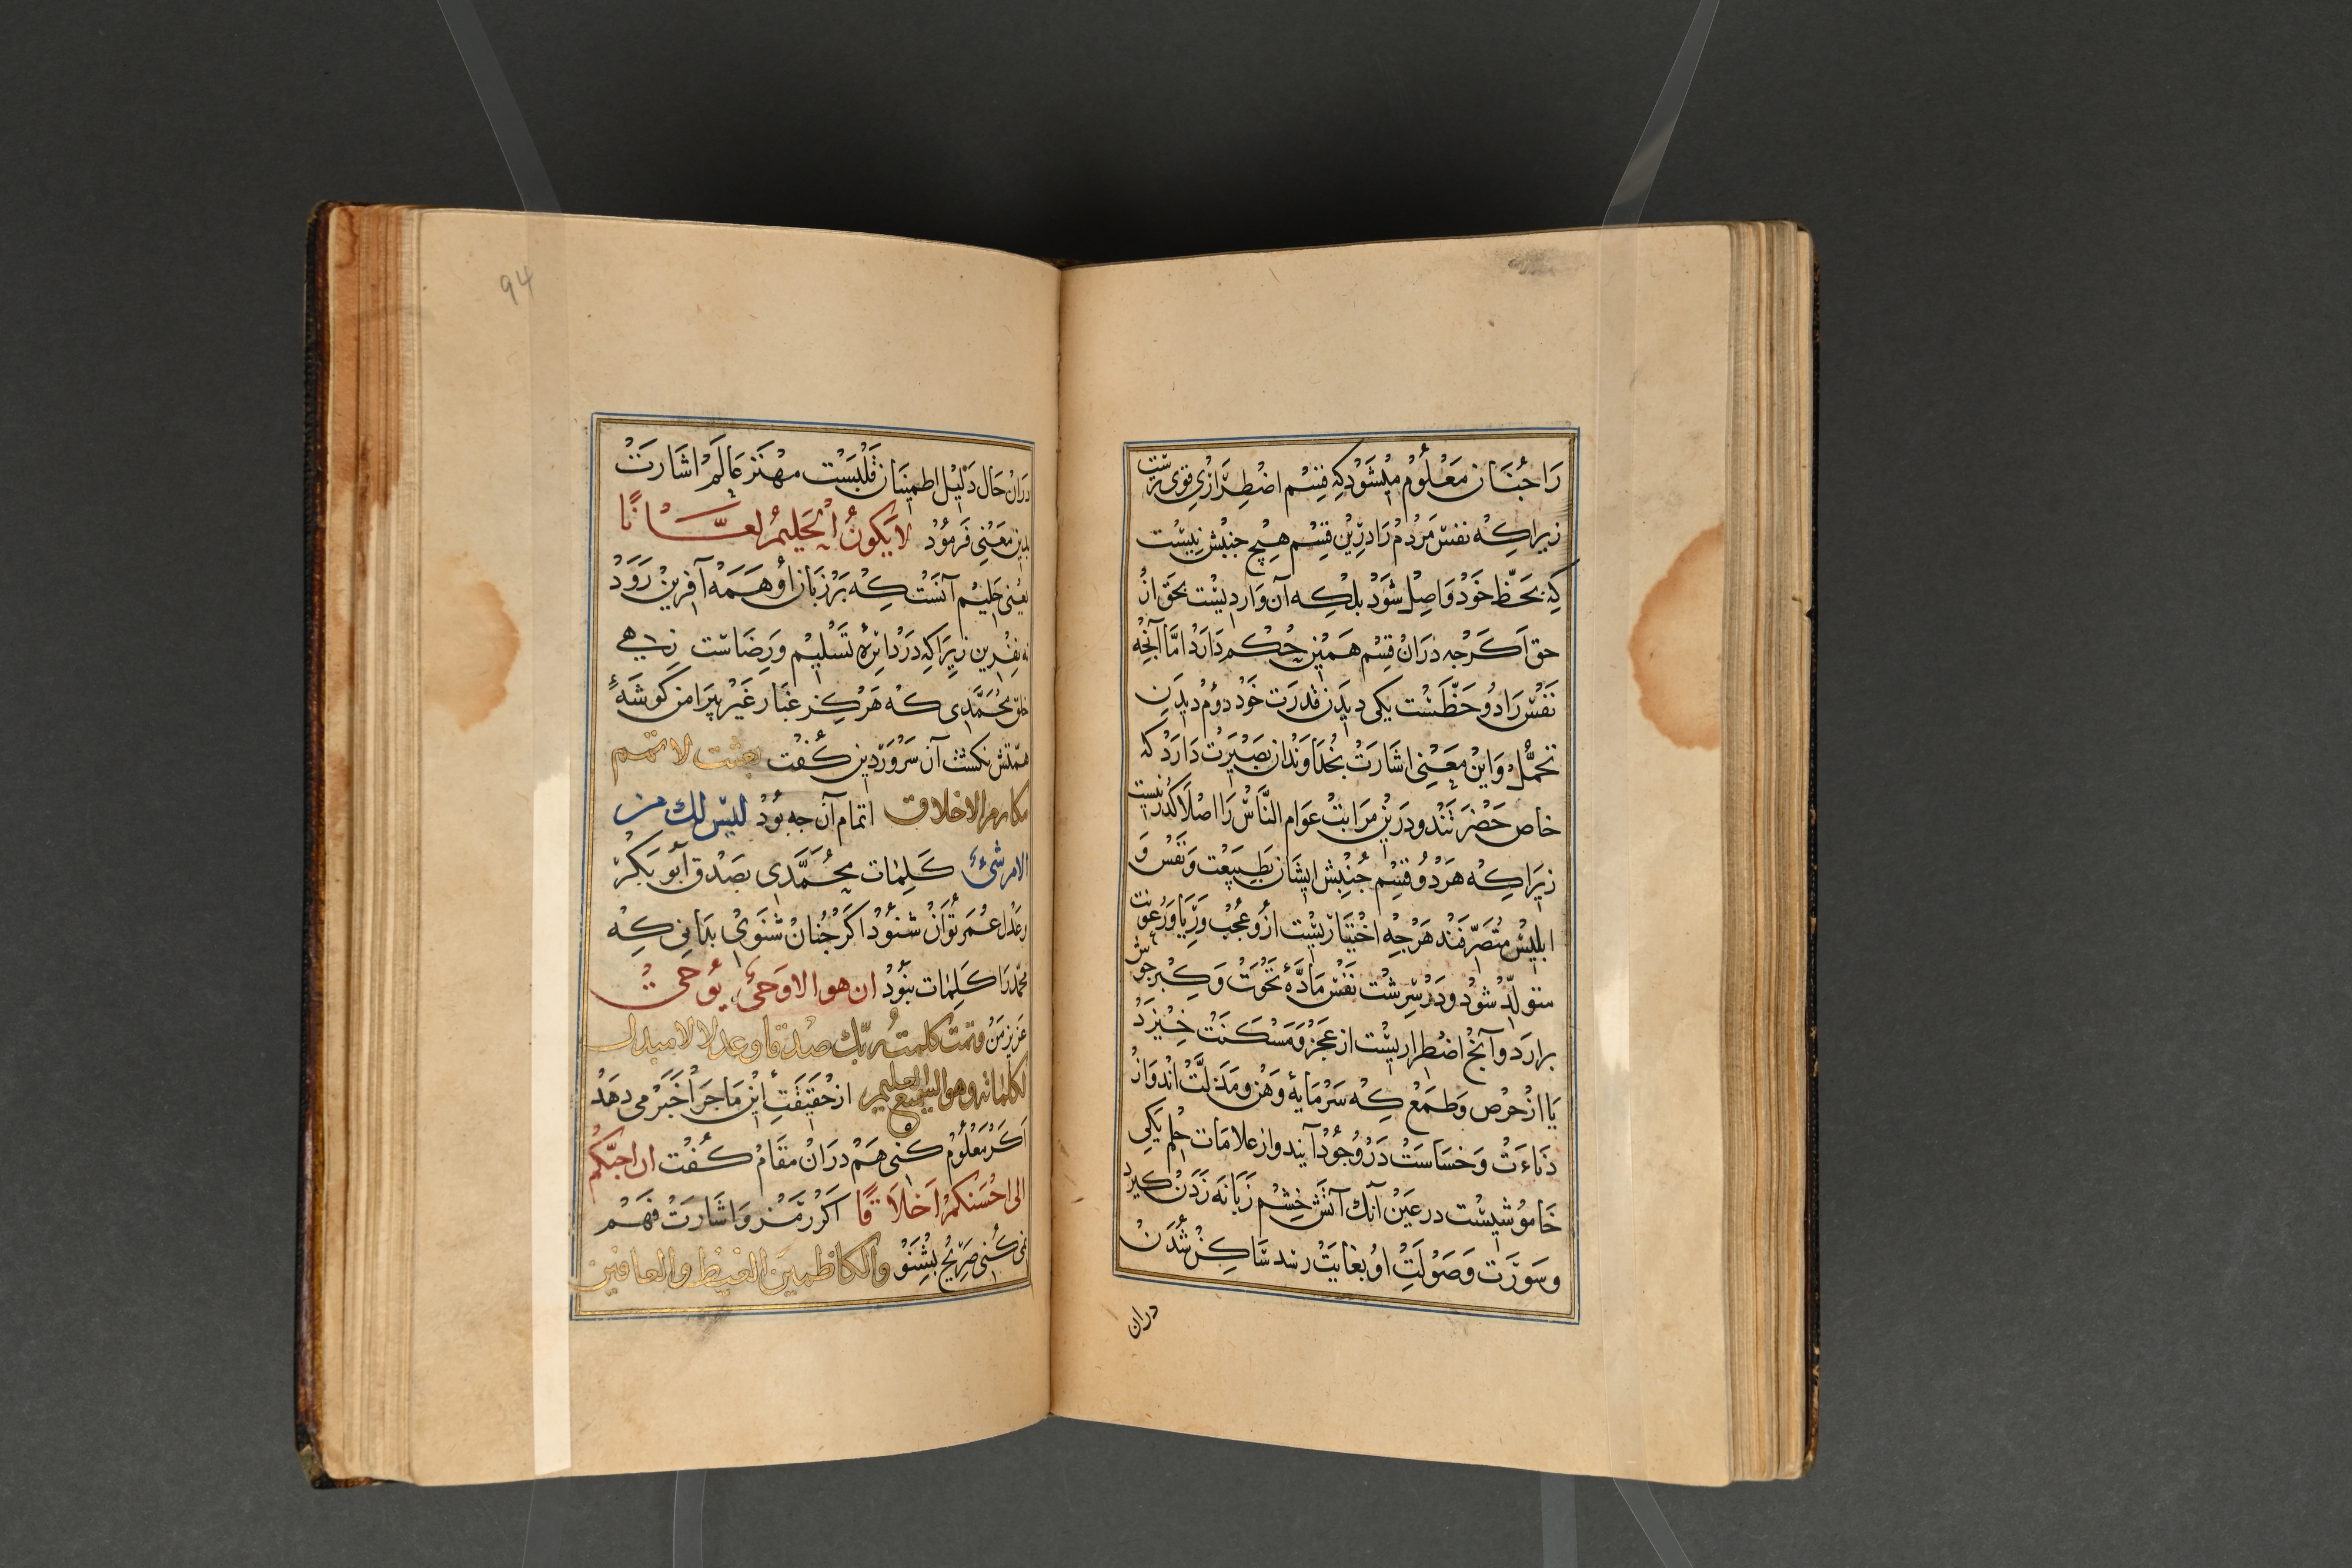 را جنان معلوم میشود که قسم اضطراری قوی ترست
زیرا که نفس مردم را درین قسم هیچ جنبش نیست
که بحظ خود واصل شود بلکه آن واردیست بحق از
حق اگرچه دران قسم همین حکم دارد اما آنچه
نفس را دو حظست یکی دیدن قدرت خود دوم دیدن
تحمل و این معنی اشارت بخداوندان بصیرت دارد که
خاص حضرتند و درین مراتب عوام الناس را اصلا گذر نیست
زیرا که هر دو قسم جنبش ایشان بطبیعت و نفس و
ابلیس متصرفند هرچه اختیاریست ازو عجب و ریا و رعونت
متولد شود و در سرشت نفس ماده نخوت و کبر جوش
برارد و آنچ اضطراریست از عجز و مسکنت خیزد
یا از حرص و طمع که سرمایهٔ وهن و مذلت اند و از
دناءت و خساست در وجود آیند و از علامات حلم یکی
خاموشیست در عین آنک آتش خشم زبانه زدن گیرد
و سورت و صولت او بغایت رسد ساکن شدن
دران
94
دران حال دلیل اطمینان قلبست مهتر عالم اشارت
بدین معنی فرمود لا یکون الحلیم لعانا
یعنی حلیم آنست که بر زبان او همه آفرین رود
نه نفرین زیرا که در دائرهٔ تسلیم و رضاست زهی
خلق محمدی که هرگز غبار غیر پیرامن گوشهٔ
همتش نگشت آن سرور دین گفت بعثت لاتمم
مکارم الاخلاق اتمام آن چه بود لیس لک من
الامر شیء کلمات محمدی بصدق ابو بکر
و عدل عمر توان شنود اگر چنان شنوی بدانی که
محمد را کلمات نبود ان هو الا وحی یوحی
عزیز من و تمت کلمت ربک صدقا و عدلا لا مبدل
لکلماته و هو السمیع العلیم از حقیقت این ماجرا خبر می دهد
اگر معلوم کنی هم دران مقام گفت ان احبکم
الی احسنکم اخلاقا اگر رمز و اشارت فهم
نمی کنی صریح بشنو و الکاظمین الغیظ و العافین